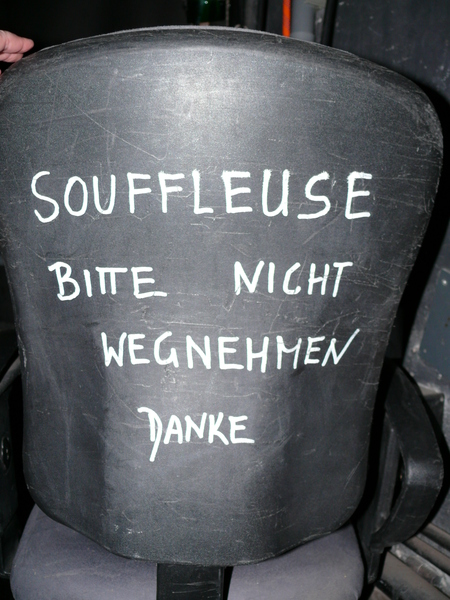 SOUFFLEUSE
BITTE NICHT
WEGNEHMEN
DANKE